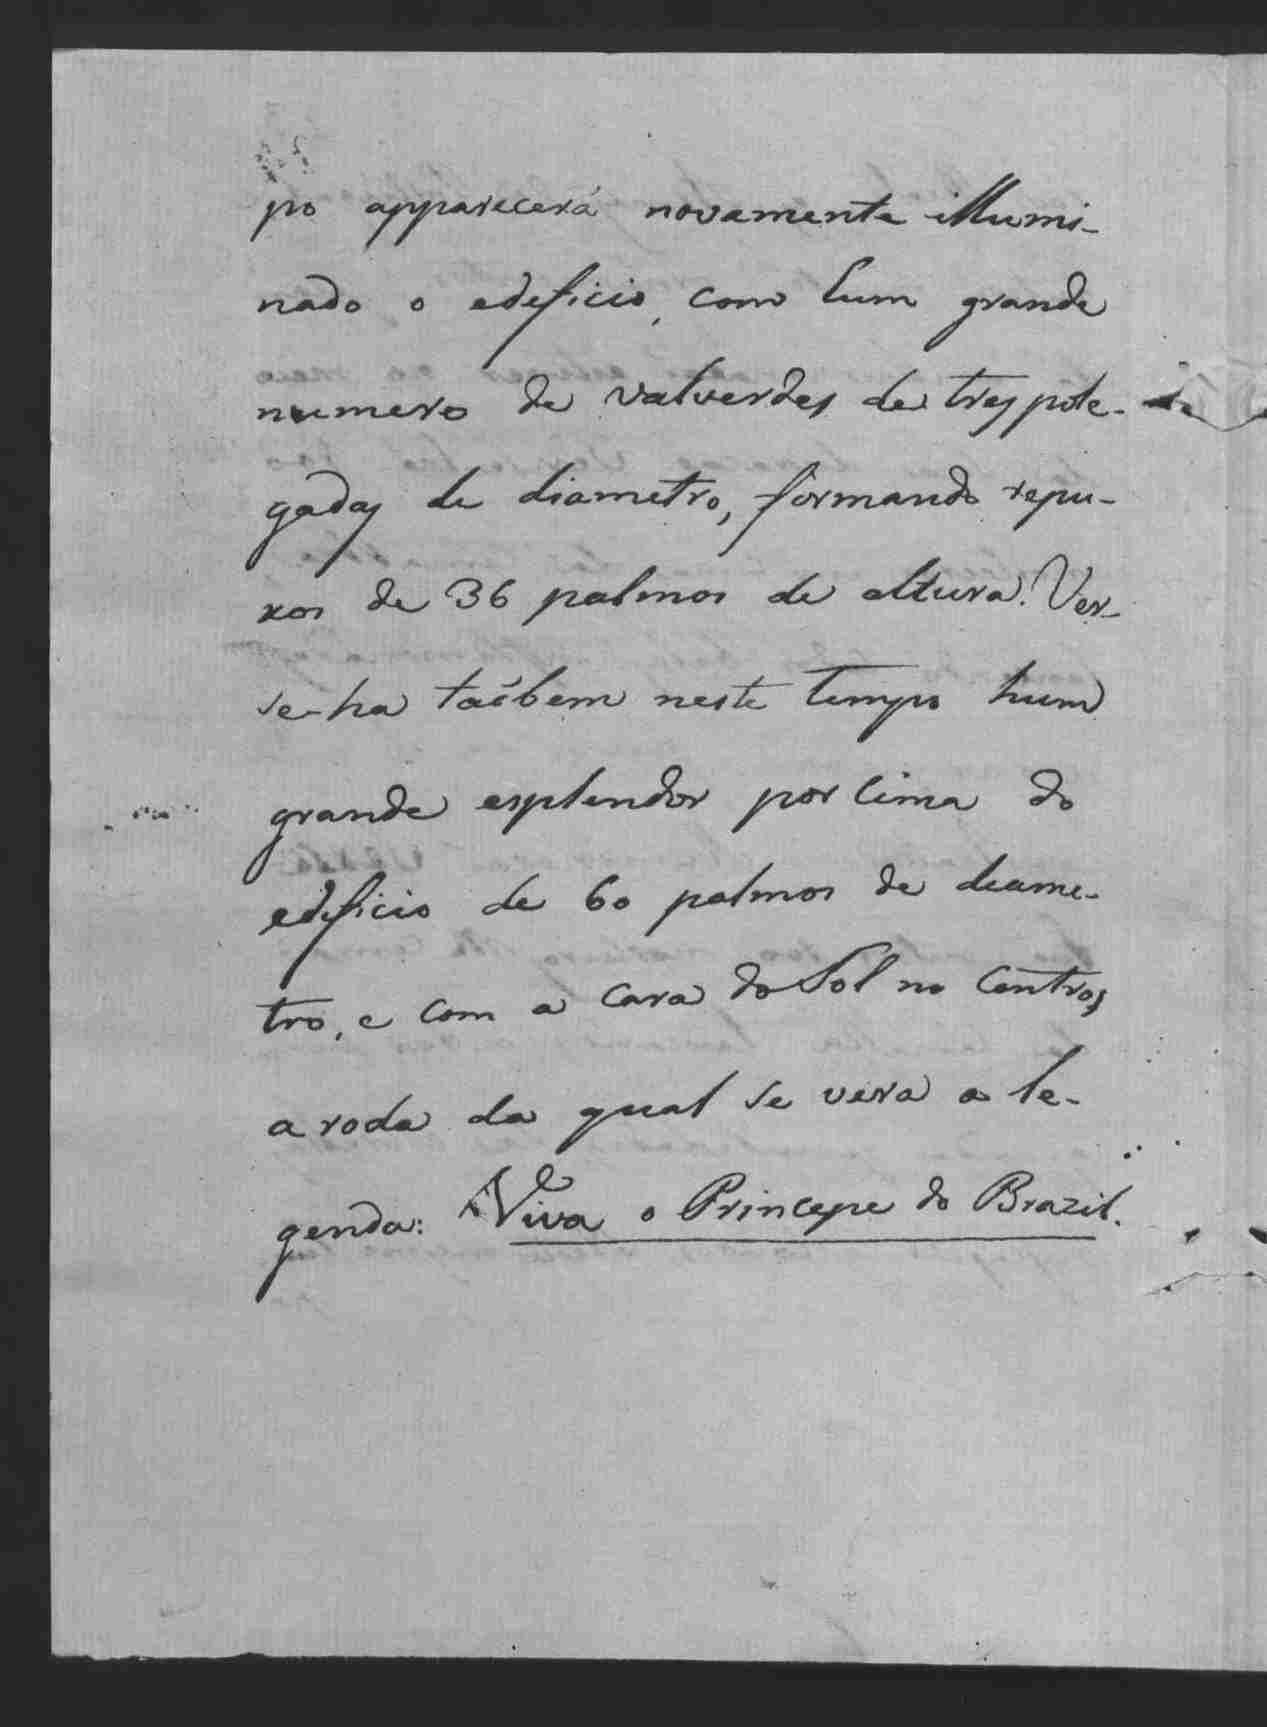 po apparecerá novamente illumi-
nado o edeficio, com hum grande
numero de valverdes de tres pole-
gadas de diametro, formando repu-
xos de 36 palmos de altura. Ver-
se-ha taõbem neste tempo hum
grande esplendor por cima do
edeficio de 60 palmos de diame-
tro, e com a cara do Sol no Centro,
a roda da qual se vera a le-
genda: Viva o Princepe do Brazil.